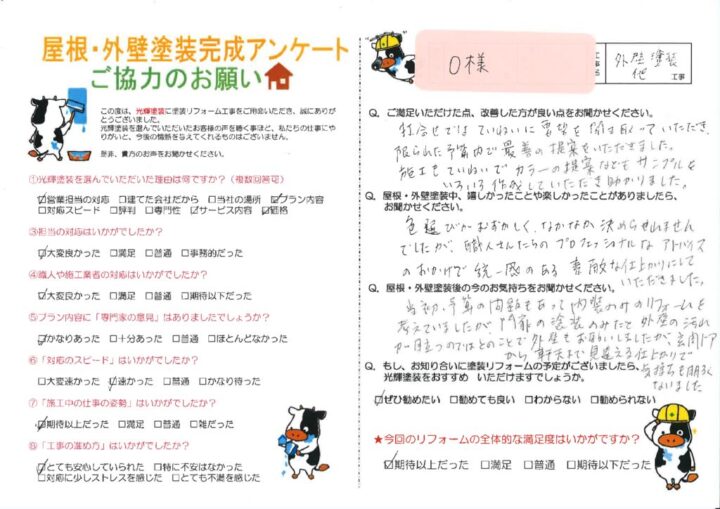 屋根・外壁塗装完成アンケート
ご協力のお願い
この度は、光輝塗装に塗装リフォーム工事をご用命いただき、誠にありがとうございました。
光輝塗装を選んでいただいたお客様の声を聴く事ほど、私たちの仕事にやりがいと、今後の情熱を与えてくれるものはございません。
是非、貴方のお声をお聞かせください。
①光輝塗装を選んでいただいた理由は何ですか?(複数回答可)
☑営業担当の対応 □建てた会社だから □当社の場所 ☑プラン内容
□対応スピード □評判 □専門性 ☑サービス内容 ☑価格
③担当の対応はいかがでしたか?
☑大変良かった □満足 □普通 □事務的だった
④職人や施工業者の対応はいかがでしたか?
☑大変良かった □満足 □普通 □期待以下だった
⑤プラン内容に「専門家の意見」はありましたでしょうか?
☑かなりあった □十分あった □普通 □ほとんどなかった
⑥「対応のスピード」はいかがでしたか?
□大変速かった ☑速かった □普通 □かなり待った
⑦「施工中の仕事の姿勢」はいかがでしたか?
☑期待以上だった □満足 □普通 □雑だった
⑧「工事の進め方」はいかがでしたか?
☑とても安心していられた □特に不安はなかった
□対応に少しストレスを感じた □とても不満を感じた
O様
外壁塗装
他 工事
Q. ご満足いただけた点、改善した方が良い点をお聞かせください。
打合せではていねいに要望を聞き取っていただき、
限られた予算内で最善の提案をいただきました。
施工もていねいでカラーの提案などもサンプルを
いろいろ作成していただき助かりました。
Q. 屋根・外壁塗装中、嬉しかったことや楽しかったことがありましたら、
お聞かせください。
色選びがむずかしく、なかなか決められませんでしたが、職人さんたちのプロフェッショナルなアドバイス
のおかげで統一感のある素敵な仕上がりにして
いただきました。
Q. 屋根・外壁塗装後の今のお気持ちをお聞かせください。
当初、予算の問題もあって内装のみのリフォームを
考えていましたが、外壁の汚れ
が目立つのではとのことで外壁もお願いしましたが、玄関ドア
から軒天まで見違える仕上がりで
気持ちも明るく
なりました
Q. もし、お知り合いに塗装リフォームの予定がございましたら、
光輝塗装をおすすめ いただけますでしょうか。
☑ぜひ勧めたい □勧めても良い □わからない □勧められない
★今回のリフォームの全体的な満足度はいかがですか?
☑期待以上だった □満足 □普通 □期待以下だった